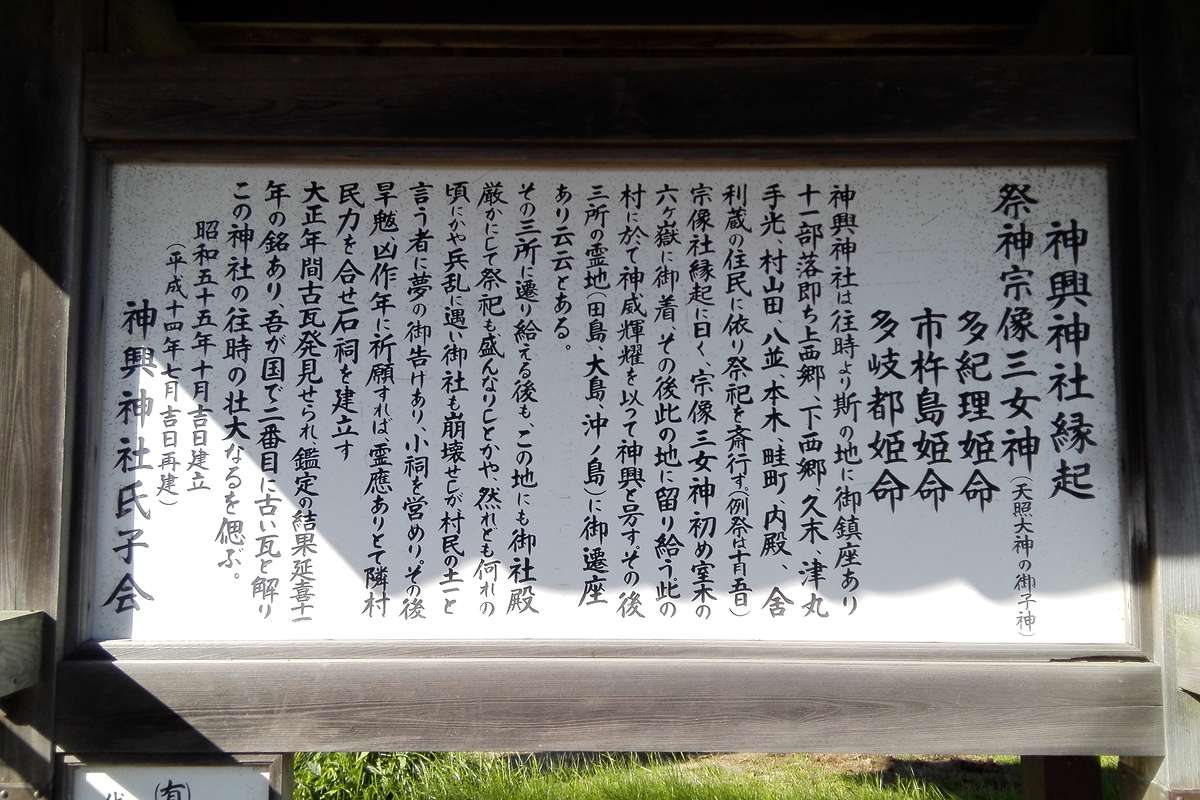 神興神社縁起
祭神宗像三女神（天照大神の御子神）
多紀理姫命
市杵島姫命
多岐都姫命
神興神社は往時より斯の地に御鎮座あり
十一部落即ち上西郷、下西郷、久末、津丸
手光、村山田、八並、本木、畦町、内殿、舎
利蔵の住民に依り祭祀を斎行す。（例祭は十月五日）
宗像社縁起に曰く、宗像三女神初め室木の
六ヶ嶽に御着、その後此の地に留り給う。此の
村に於て神威輝耀を以って神興と号す。その後
三所の霊地（田島、大島、沖ノ島）に御遷座
あり云云とある。
その三所に遷り給える後も、この地にも御社殿
厳かにして祭祀も盛んなりしとかや、然れども何れの
頃にかや兵乱に遇い御社も崩壊せしが村民の土一と
言う者に夢の御告けあり、小祠を営めり。その後
旱魃凶作年に祈願すれば霊應ありとて隣村
民力を合せ石祠を建立す
大正年間古瓦発見せられ、鑑定の結果延喜十一
年の銘あり、吾が国で二番目に古い瓦と解り
この神社の往時の壮大なるを偲ぶ。
昭和五十五年十月吉日建立
（平成十四年七月吉日再建）
神興神社氏子会
（有）